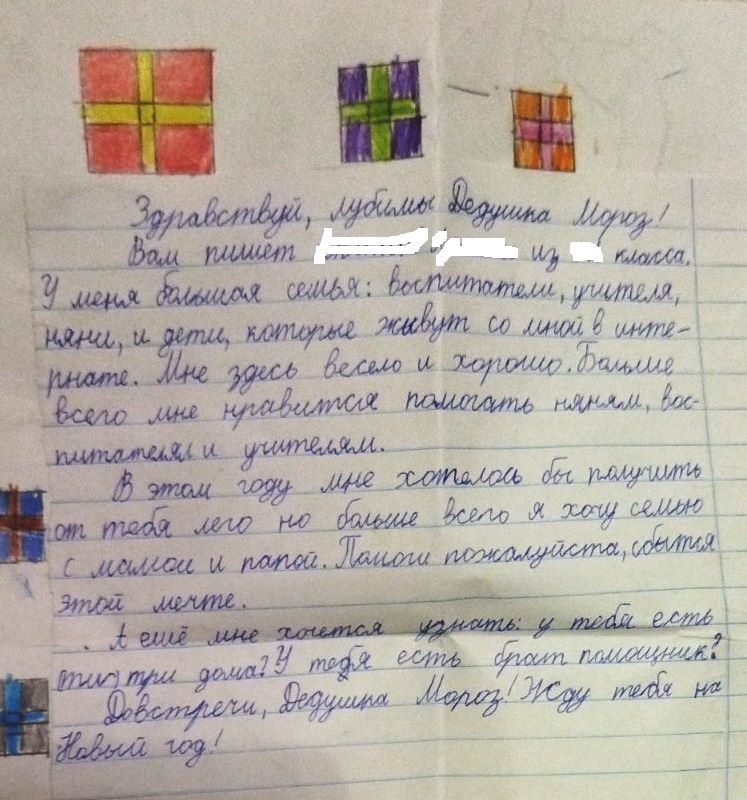 Здравствуй, любимы Дедушка Мороз!
Вам пишет из класса.
У меня большая семья: воспитатели, учителя,
няни, и дети, которые живут со мной в инте-
рнате. Мне здесь весело и хорошо. Больше
всего мне нравится помогать няням, вос-
питателям и учителям.
В этом году мне хотелось бы получить
от тебя лего но больше всего я хочу семью
с мамой и папой. Помоги пожалуйста, сбытся
этой мечте.
А ещё мне хочется узнать: у тебя есть
три дома? У тебя есть брат помощник?
Довстречи, Дедушка Мороз! Жду тебя на
Новый год!